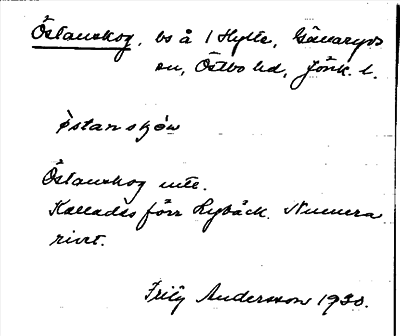 Östanskog, bs å 1 Hylte, Gällaryds
sn, Östbo hd, Jönk. l.
östanskow
Östanskog ute.
Kallades förr Lybäck. Numera
rivet.
Frity Andersson 1930.